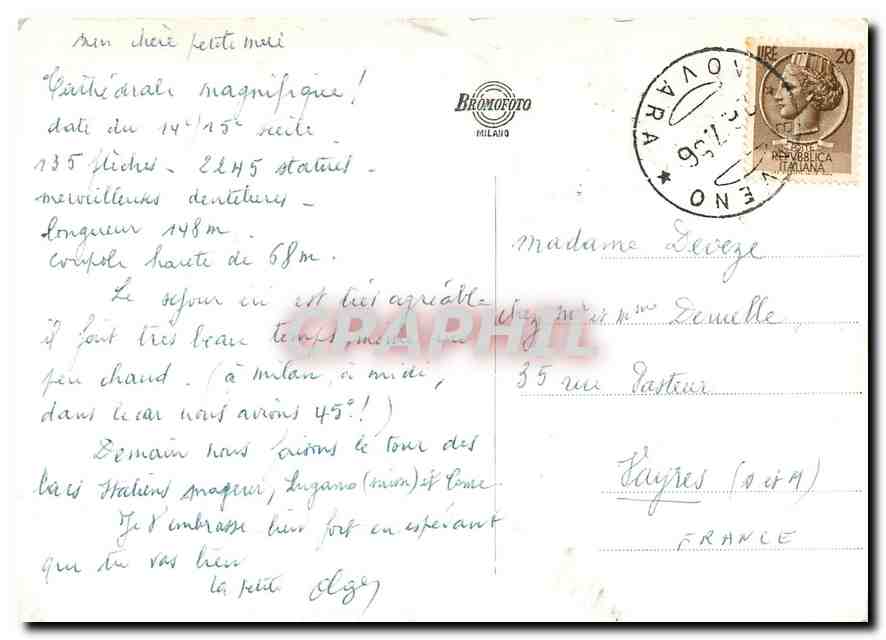 mon chère petite mère
Cathédrale magnifique!
date du 14e/15e siècle
135 flèches - 2245 statues -
merveilleuses dentelures -
longueur 148m.
coupole haute de 68m.
Le séjour ici est très agréable
il fait très beau temps, même un
peu chaud. (à Milan, à midi,
dans le car nous avions 45°!)
Demain nous faisons le tour des
lacs Italiens mageur, Lugano et Come.
Je t'embrasse bien fort en espérant
que tu vas bien
la petite
BROMOFOTO
MILANO
LIRE 20
POSTE
REPVBBLICA
ITALIANA
NOVARA
VENO
7.56
Madame Deveze
chez Mr et Mme Demelle
35 rue Pasteur
Vayres (S et M)
FRANCE
CPAPHIL